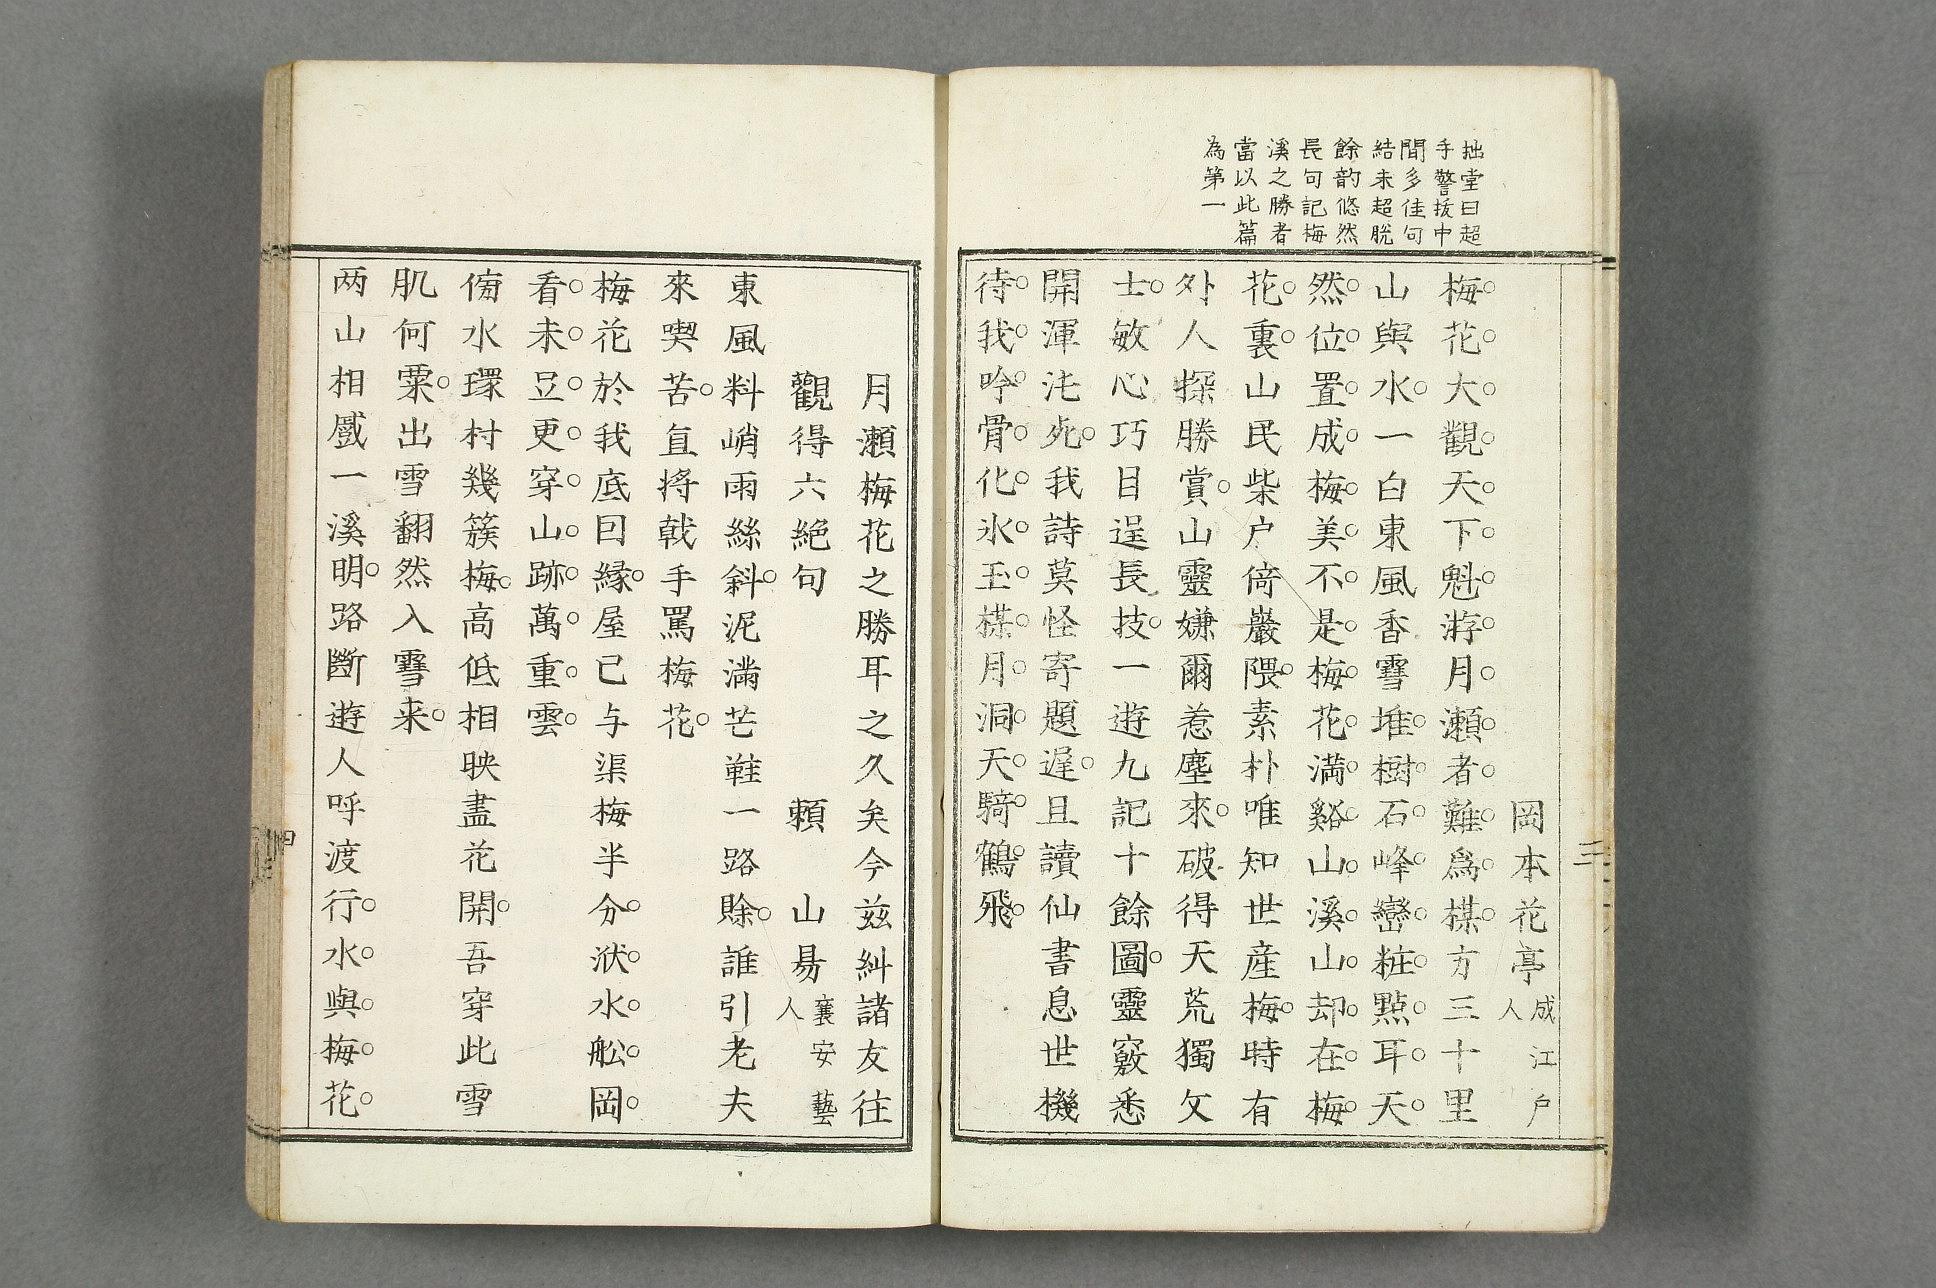 拙堂曰超
手警拔中
間多佳句
結未超脫
餘韵悠然
長句記梅
溪之勝者
當以此篇
為第一
岡本花亭成江戶人
梅花大觀天下魁游月瀬者難為楳方三十里
山與水一白東風香雪堆樹石峰巒粧點耳天
然位置成梅美不是梅花滿谿山溪山却在梅
花裏山民柴户倚巖隈素朴唯知世産梅時有
外人探勝賞山靈嫌爾惹塵來破得天荒獨文
士敏心巧目逞長技一遊九記十餘圖靈竅悉
開渾沌死我詩莫怪寄題遲且讀仙書息世機
待我吟骨化氷玉楳月洞天騎鶴飛
三
月瀬梅花之勝耳之久矣今玆糾諸友往
觀得六絕句 賴 山昜襄安藝人
東風料峭雨絲斜泥滿芒鞋一路賒誰引老夫
來喫苦亘將戟手罵梅花
梅花於我底回緣屋已与渠梅半分洑水舩岡
看未足更穿山跡萬重雲
傍水環村幾簇梅高低相映盡花開吾穿此雪
肌何粟出雪翻然入雪来
两山相戲一溪明路斷遊人呼渡行水與梅花
四